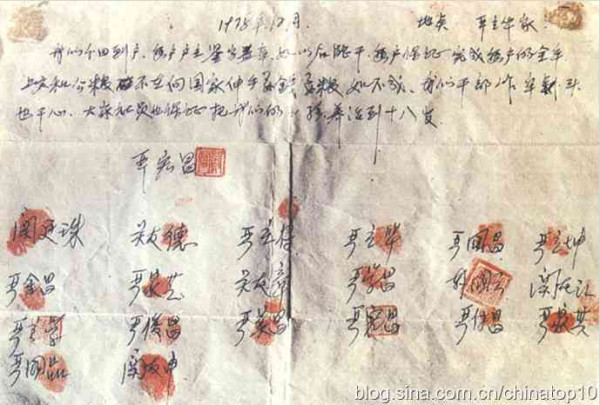 1978年12月. 地点 严立华家
我们分田到户,每户户主签字盖章,如以后能干,每户保证完成每户的全年
上交和公粮,不在向国家伸手要钱要粮,如不成,我们干部作牢刹头
也干心,大家社员也保证把我们的小孩养活到十八岁.
严宏昌
关廷珠 关友德 严立符 严立华 严国昌 严立坤
严金昌 严家芝 关友章 严学昌 韩国云 关友江
严立学 严俊昌 严美昌 严宏昌 严付昌 严家其
严国品 关友申
blog.sina.com.cn/chinatop10